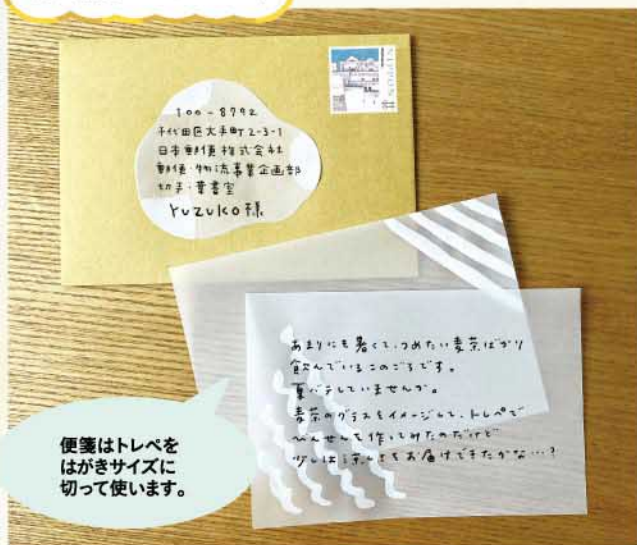 100-8792
千代田区大手町2-3-1
日本郵便株式会社
郵便・物流事業企画部
切手・葉書室
Yuzuko様
NIPPON
あまりにも暑くて、つめたい麦茶ばかり
飲んでいるこのごろです。
夏バテしていませんか。
麦茶のグラスをイメージして、トレペで
びんせんを作ってみたのだけど
少しは涼しさをお届けできたかな…?
便箋はトレペを
はがきサイズに
切って使います。